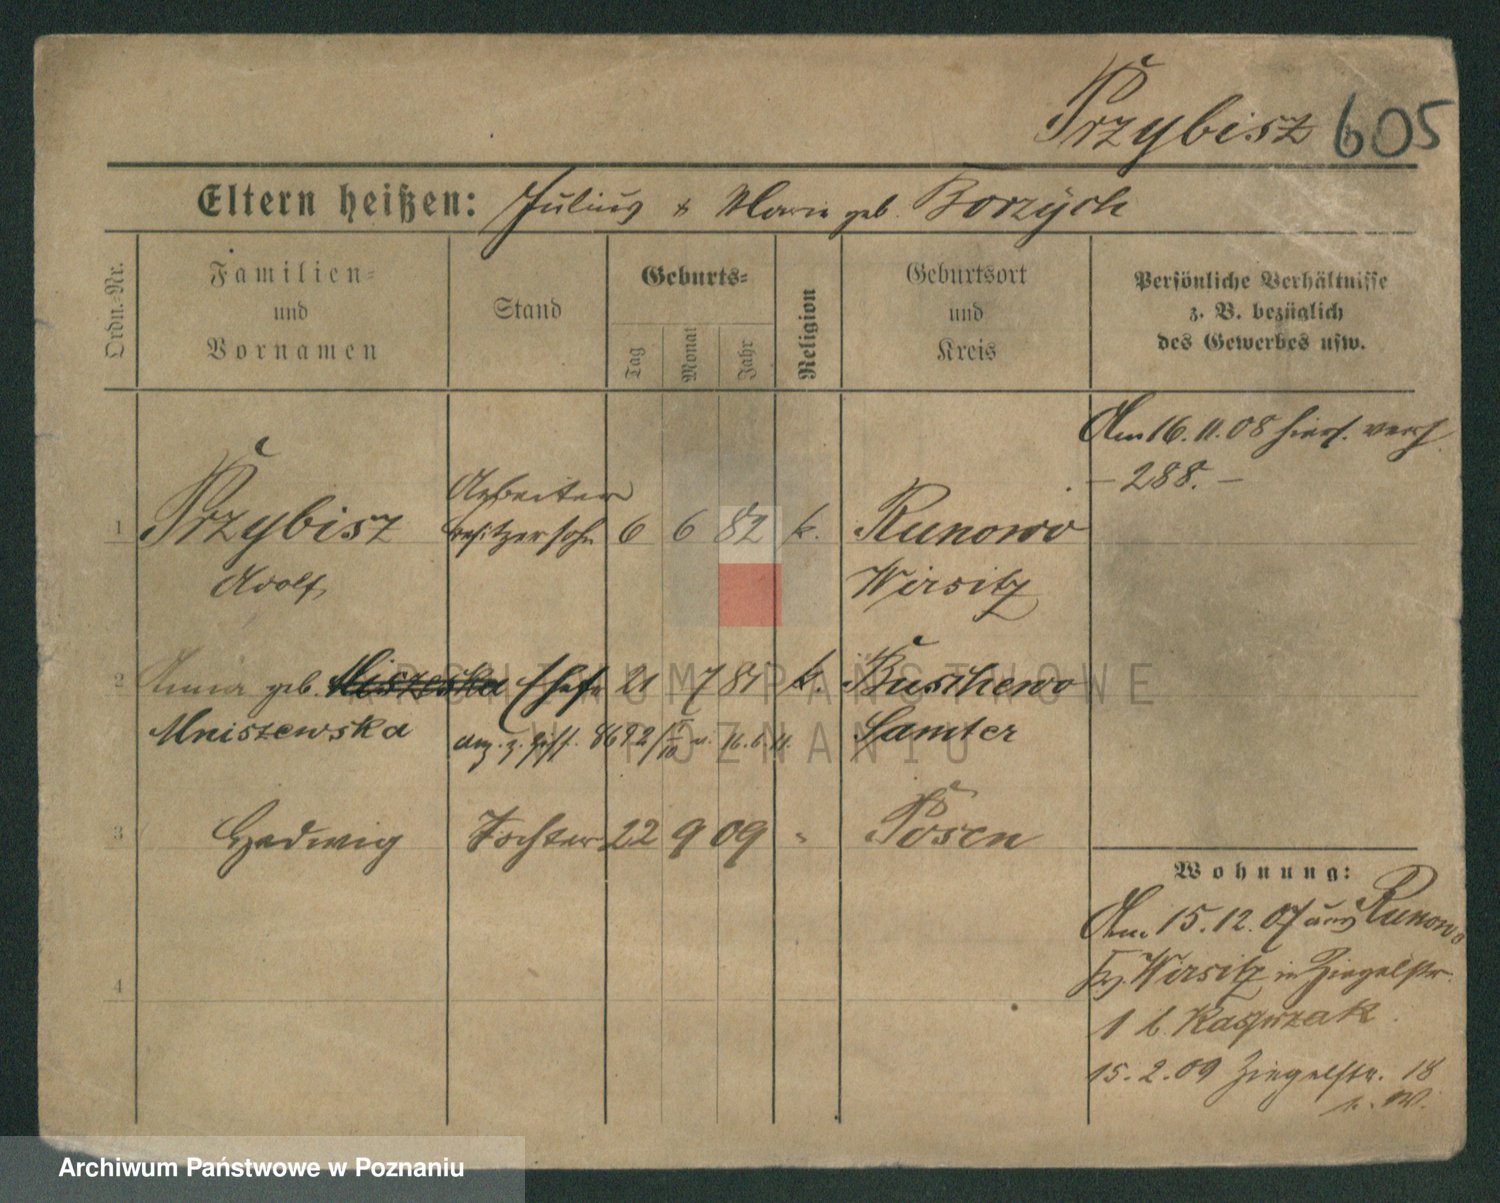 Przybisz 605
Eltern heißen: Julius & Marie geb. Borzych
Ordn.-Nr.
Familien-
und
Vornamen
Stand
Geburts-
Tag
Monat
Jahr
Religion
Geburtsort
und
Kreis
Persönliche Verhältnisse
z. B. bezüglich
des Gewerbes usw.
Am 16.11.08 hier verh.
- 288. -
Arbeiter
1 Przybisz besitzersohn 6 6 82 k. Runowo
Adolf Wirsitz
2 Anna geb. Ehefr 21 7 81 k. Buschewo
Mniszewska 8692/ 16.6.11. Samter
3 Hedwig Tochter 22 9 09 " Posen
4
Wohnung:
Am 15.12.07 aus Runowo
Kr. Wirsitz in Ziegelstr.
1 b. Kasprzak
15.2.09 Ziegelstr. 18
b. W.
ARCHIWUM PAŃSTWOWE
W POZNANIU
Archiwum Państwowe w Poznaniu